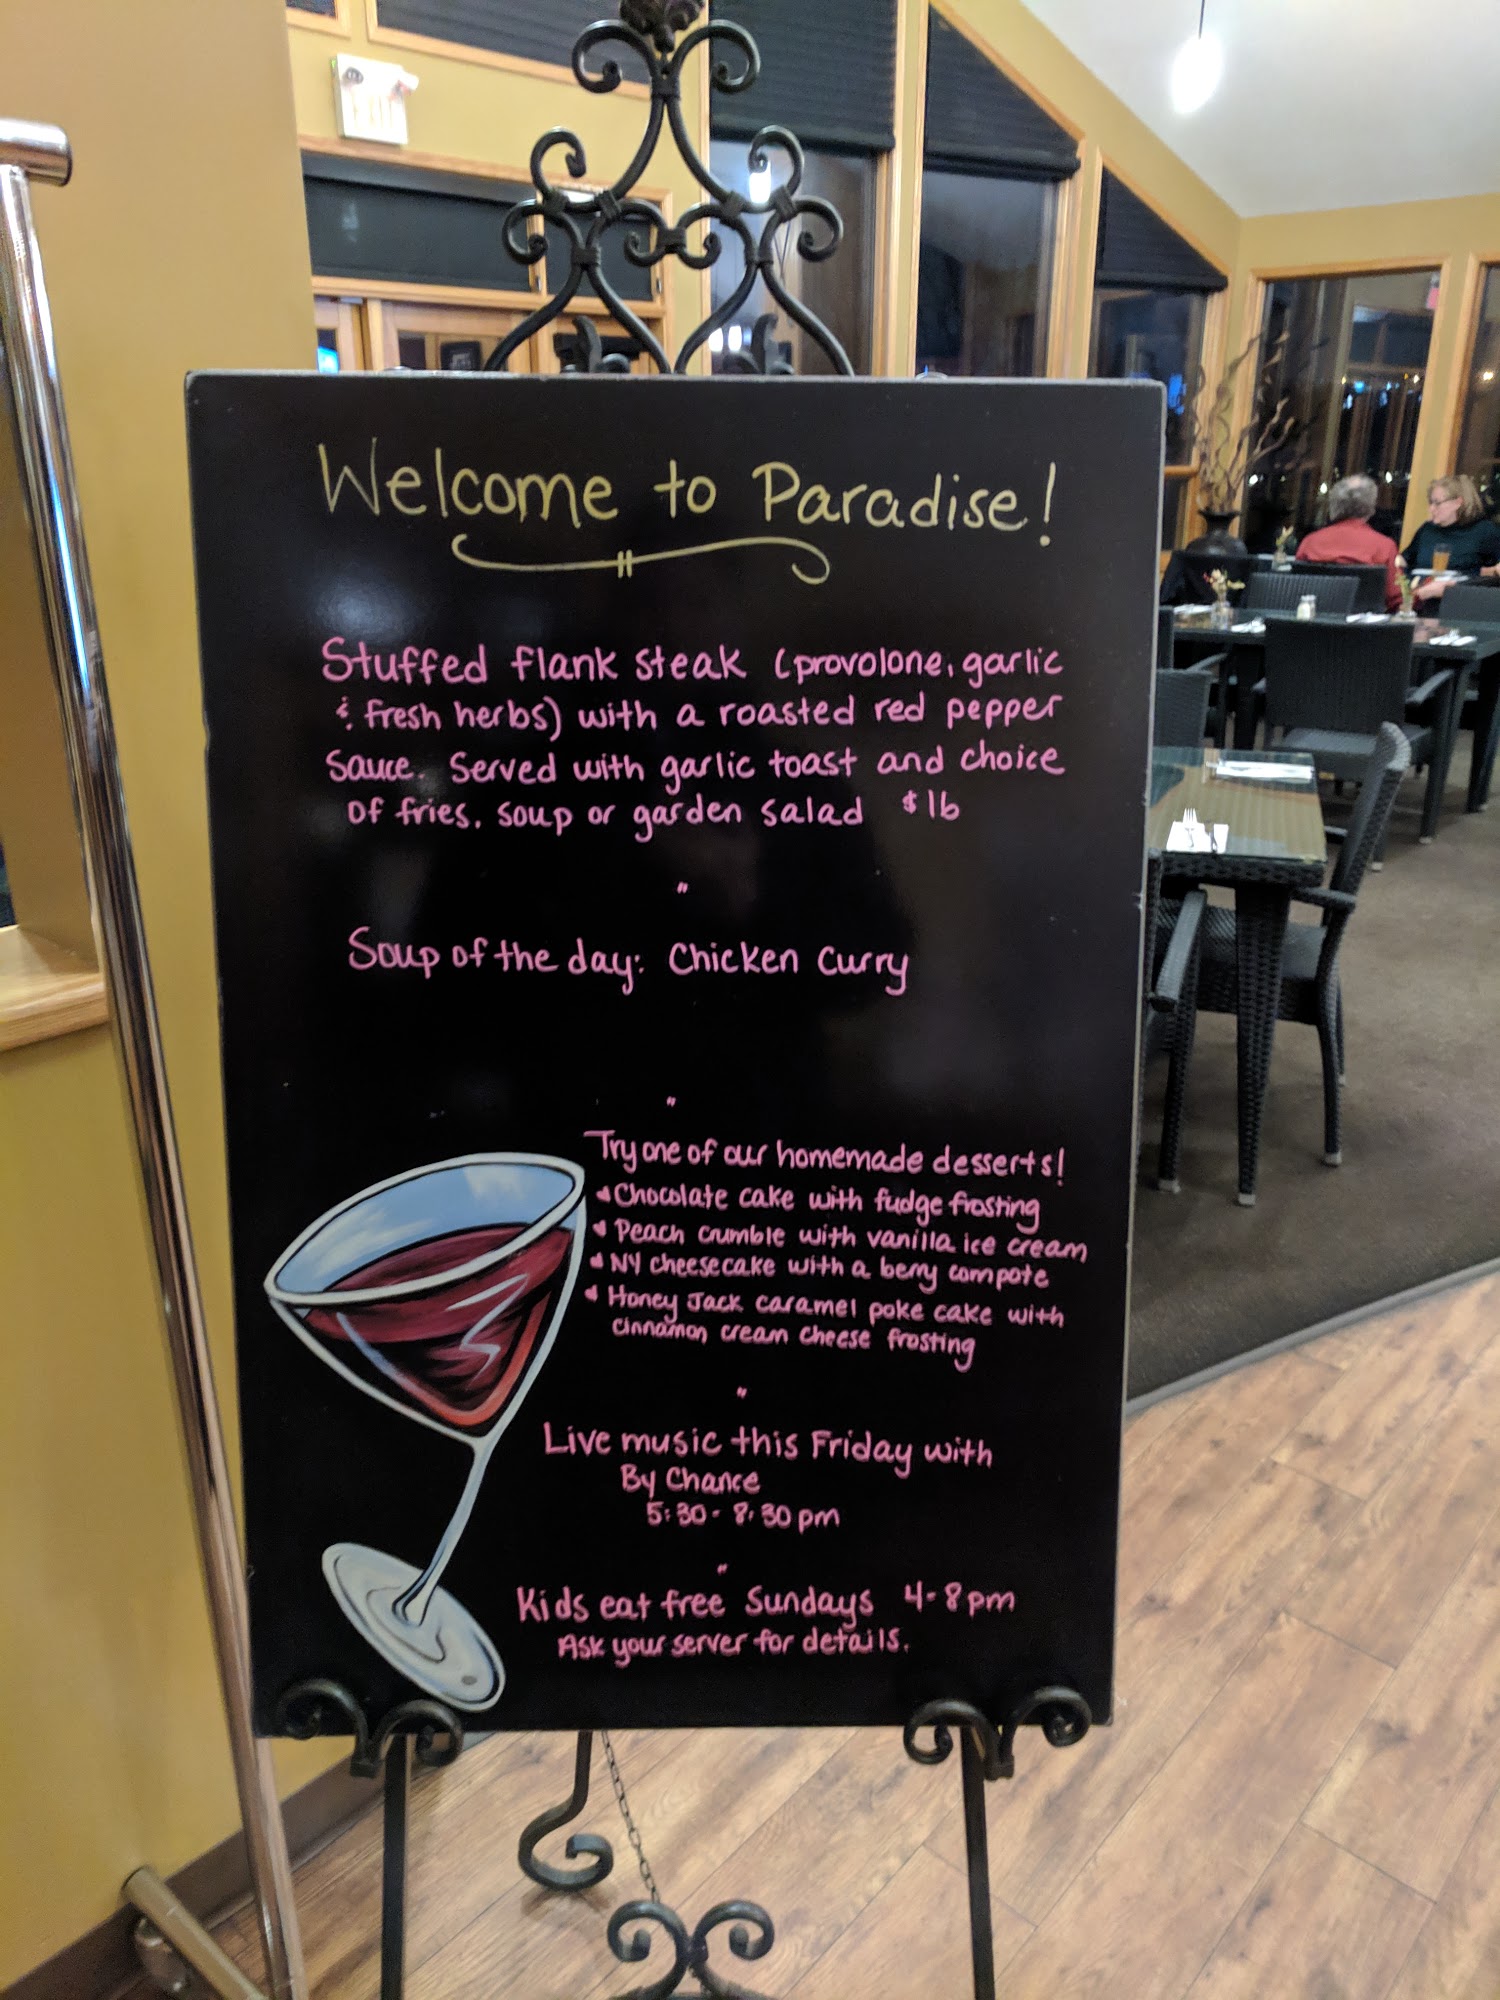 EXIT
Welcome to Paradise!
Stuffed flank steak (provolone, garlic
& fresh herbs) with a roasted red pepper
sauce. Served with garlic toast and choice
of fries, soup or garden salad $16
"
Soup of the day: Chicken Curry
"
Try one of our homemade desserts!
Chocolate cake with fudge frosting
Peach crumble with vanilla ice cream
NY cheesecake with a berry compote
Honey Jack caramel poke cake with
cinnamon cream cheese frosting
"
Live music this Friday with
By Chance
5:30-8:30pm
"
Kids eat free Sundays 4-8pm
Ask your server for details.